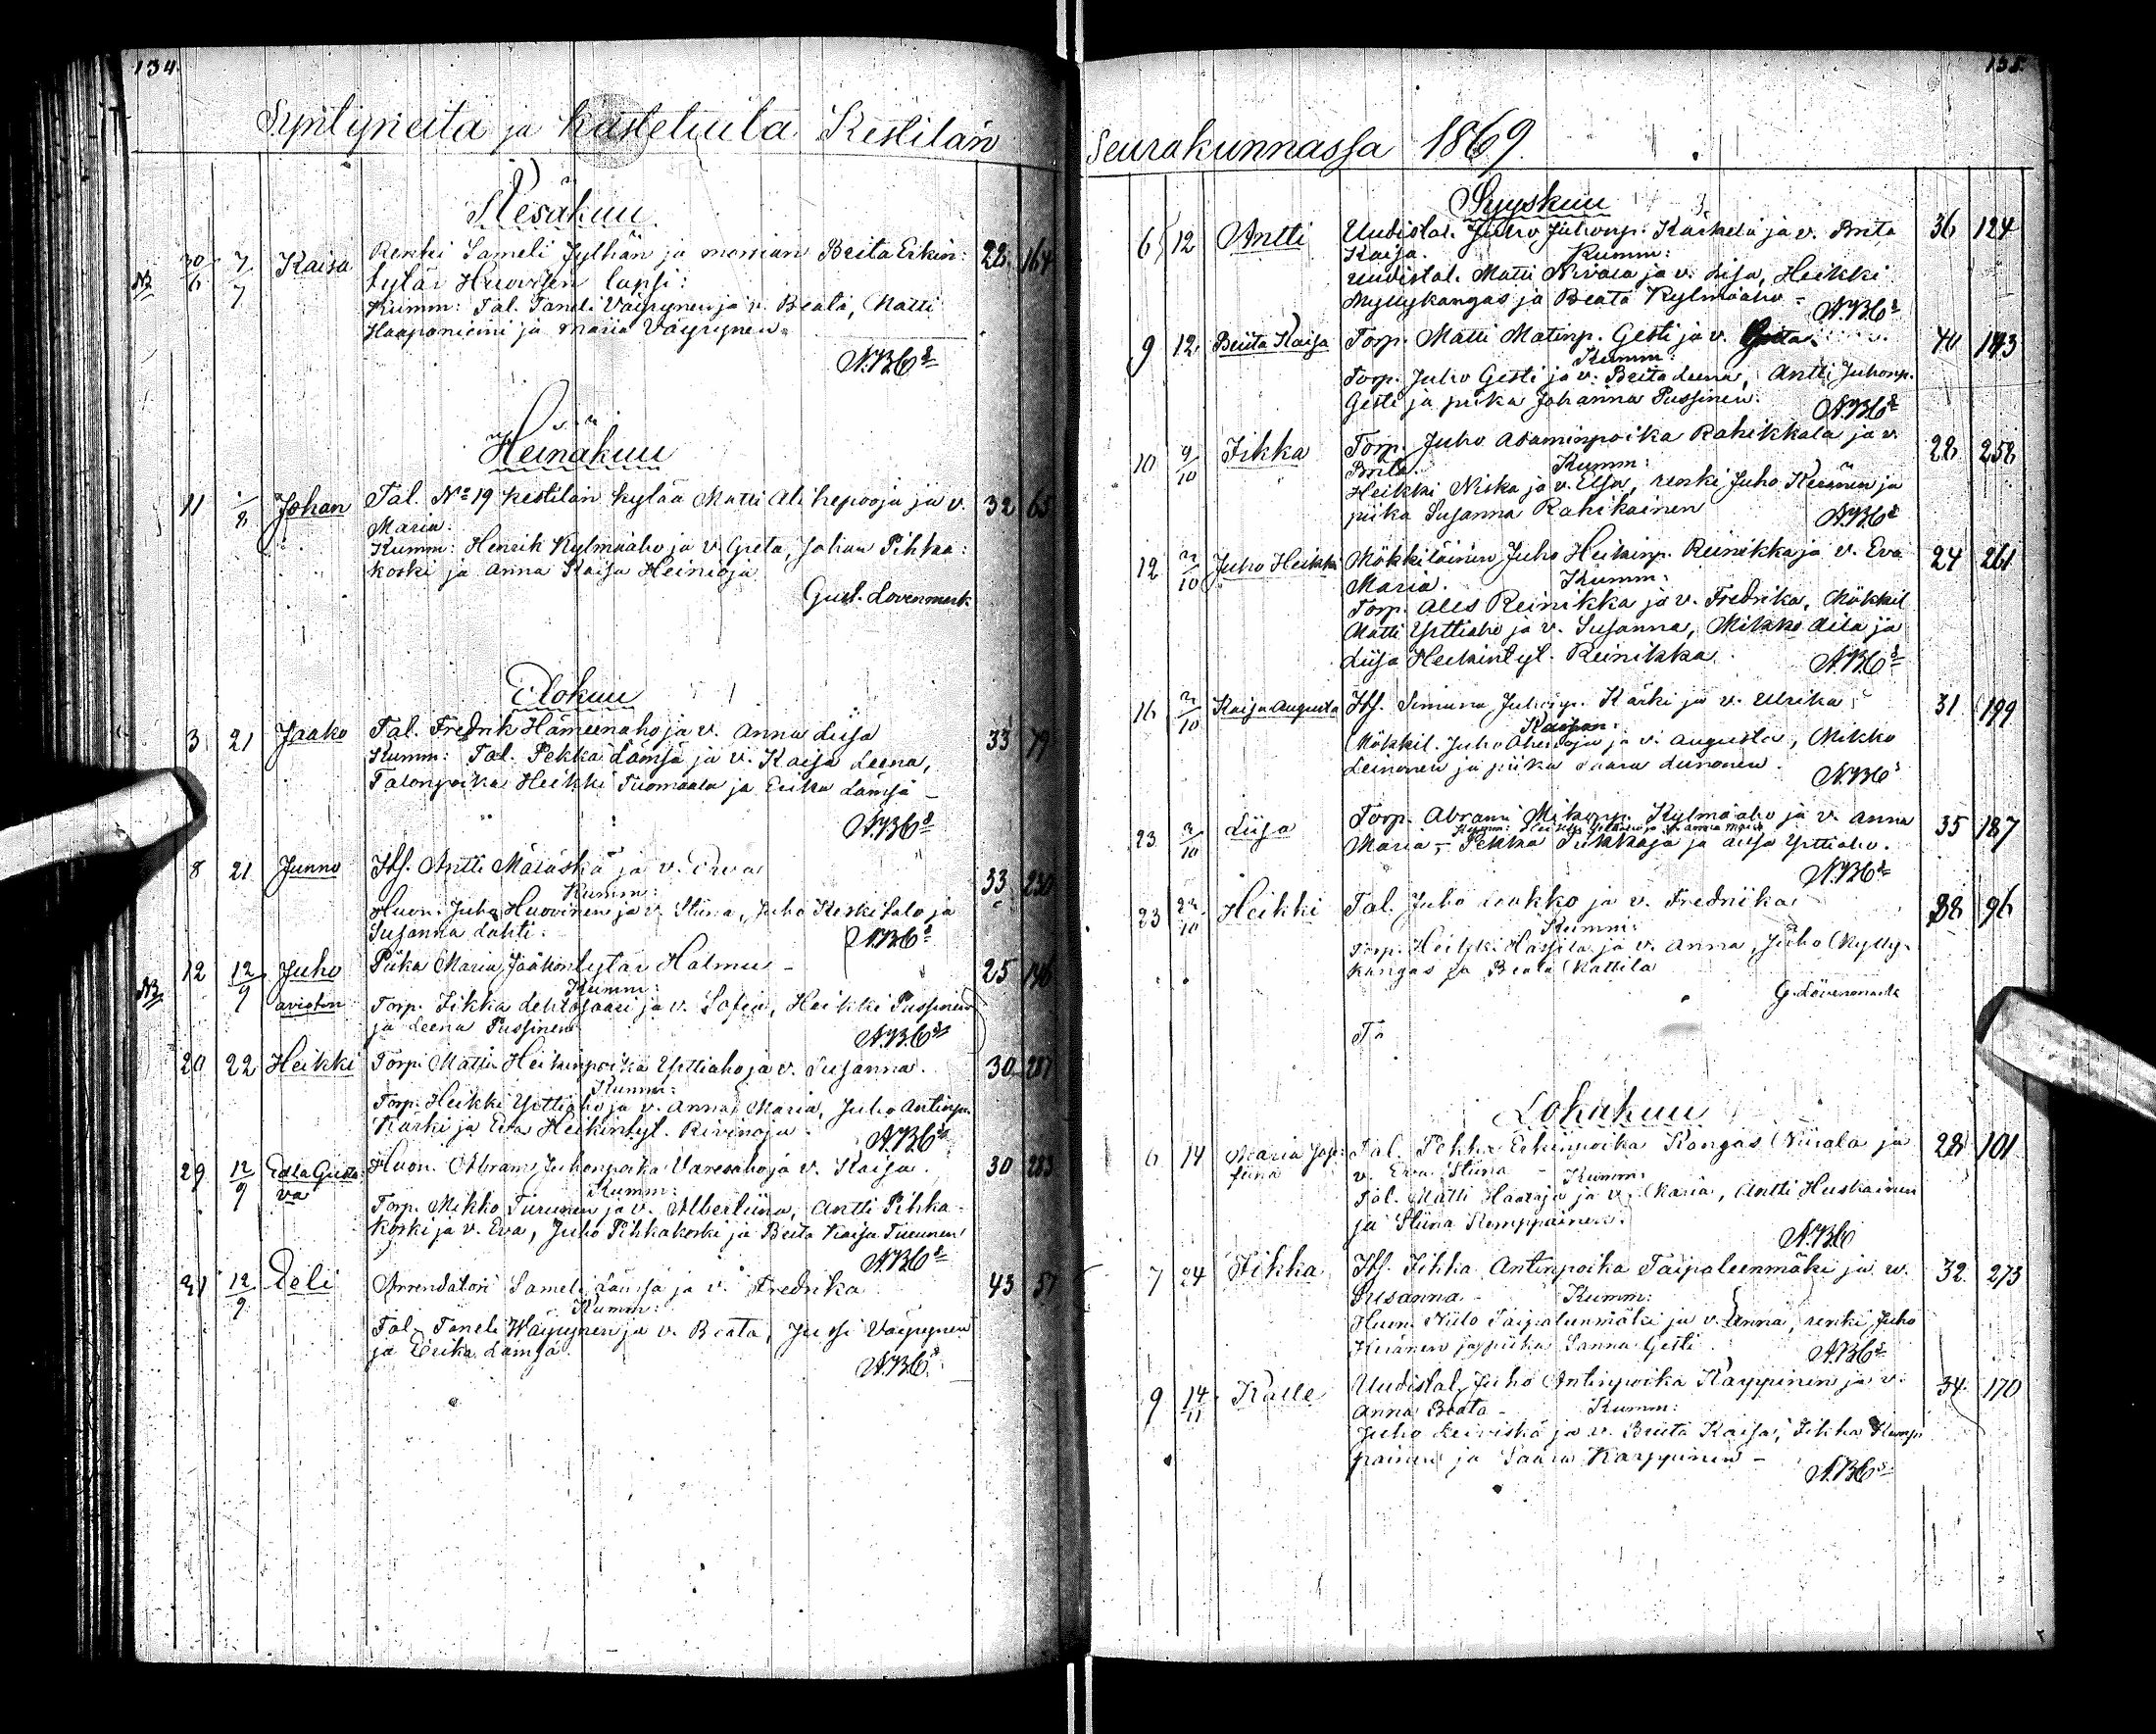 134
Syntyneita ja kastetuita Kestilän
Kesäkuu
NB 30/6 7/7 Kaisa Renki Sameli Jylhän ja morsian Breita Erkin: 28 164
tytär Huovisen lapsi:
Kumm: Tal. Taneli Väyrynen ja v. Beata, Matti
ja Maria Väyrynen
N.B.C
Heinäkuu
11 8 Johan Tal. No 19 Kestilän kylää Matti Alihepooja ja v. 32 65
Maria.
Kumm: Henrik Kylmäaho ja v. Greta, Johan Pihka:
koski ja Anna Kaisa Heinioja
Gust. Lovenmark
Elokuu
3 21 Jaako Tal. Fredrik Hämeenaho ja v. Anna Liisa 33 79
Kumm: Tal. Pekka Lämsä ja v. Kaisa Leena,
Talonpoika Heikki Tuomaala ja Erika Lämsä -
N.B.C
8 21 Junno Its. Antti Määttä ja v. Eeva 33 230
Kumm:
Huon. Juho Huovinen ja v. Stiina, Juho Keski Salo ja
Susanna Lahti.
N.B.C
NB 12 12/9 Juho Piika Maria Jaakontytär Halmu - 25 146
avioton Kumm:
Torp. Iikka Lehtosaari ja v. Sofia, Heikki Pussinen
ja Leena Pussinen
N.B.C
20 22 Heikki Torp. Matti Heikinpoika Yrttiaho ja v. Susanna. 30 287
Kumm:
Torp. Heikki Yrttiaho ja v. Anna Maria, Juho Antinp.
Kärki ja Eva Heikintyt. Rivinoja
N.B.C
29 12/9 Edla Gusta Huon. Abram Juhonpoika Varesaho ja v. Kaisa. 30 283
va Kumm:
Torp. Mikko Turunen ja v. Albertiina, Antti Pihka-
koski ja v. Eva, Juho Pihkakoski ja Breita Kaisa Turunen
N.B.C
31 12/9 Eeli Arrendatori Sameli Lämsä ja v. Fredrika 43 57
Kumm:
Tal. Taneli Wäyrynen ja v. Beata, Jussi Väyrynen
ja Eerika Lämsä.
N.B.C
135
Seurakunnassa 1869.
Syyskuu
6 12 Antti Uudistal. Juho Juhonp. Kärkelä ja v. Brita 36 124
Kaisa. Kumm:
Uudistal. Matti Nivala ja v. Lisa, Heikki
Myllykangas ja Beata Kylmäaho -
N.B.C
9 12 Breita Kaisa Torp. Matti Matinp. Gesti ja v. Greta 40 143
Kumm:
Torp. Juho Gesti ja v. Breita Leena, Antti Juhonp.
Gesti ja piika Johanna Pussinen.
N.B.C
10 9/10 Iikka Torp. Juho Adaminpoika Rahikkala ja v. 28 258
Brita. Kumm:
Heikki Niska ja v. Elsa, renki Juho Keränen ja
piika Susanna Rahikainen
N.B.C
12 2/10 Juho Heikki Mökkiläinen Juho Heikinp. Reinikka ja v. Eva 24 261
Maria. Kumm:
Torp. Ales Reinikka ja v. Fredrika, Mökkil.
Matti Yrttiaho ja v. Susanna, Mikko Aila ja
Liisa Heikintyt. Reinikka.
N.B.C
16 2/10 Kaisa Augusta Its. Simuna Juhonp. Kärki ja v. Ulrika 31 199
Mökkil. Juho Ahenoja ja v. Augusta, Mikko
Leinonen ja piika Saara Leinonen.
N.B.C
23 2/10 Liisa Torp. Abram Mikonp. Kylmäaho ja v. Anna 35 187
Maria - Pekka Pukkaja ja Liisa Yrttiaho.
N.B.C
23 23/10 Heikki Tal. Juho Laukko ja v. Fredriika 38 96
Kumm:
Torp. Heikki Hassila ja v. Anna, Juho Mylly-
kangas ja Beata Kattila
G. Lövenmark
Lokakuu
6 14 Maria Jose: Tal. Pekka Erkinpoika Kangas Niirala ja 28 101
fiina v. Eva Stiina - Kumm:
Tal. Matti Haaraja ja v. Maria, Antti Huskainen
ja Stiina Kemppainen.
N.B.C
7 24 Iikka Its. Iikka Antinpoika Taipaleenmäki ja v. 32 273
Susanna - Kumm:
Huon. Niilo Taipaleenmäki ja v. Anna, renki Juho
Keränen ja piika Sanna Gesti
N.B.C
9 14/11 Kalle Uudistal. Juho Antinpoika Karppinen ja v. 34 170
Anna Beata - Kumm:
Juho Leiviskä ja v. Breita Kaisa, Iikka Kemp
painen ja Saara Karppinen -
N.B.C